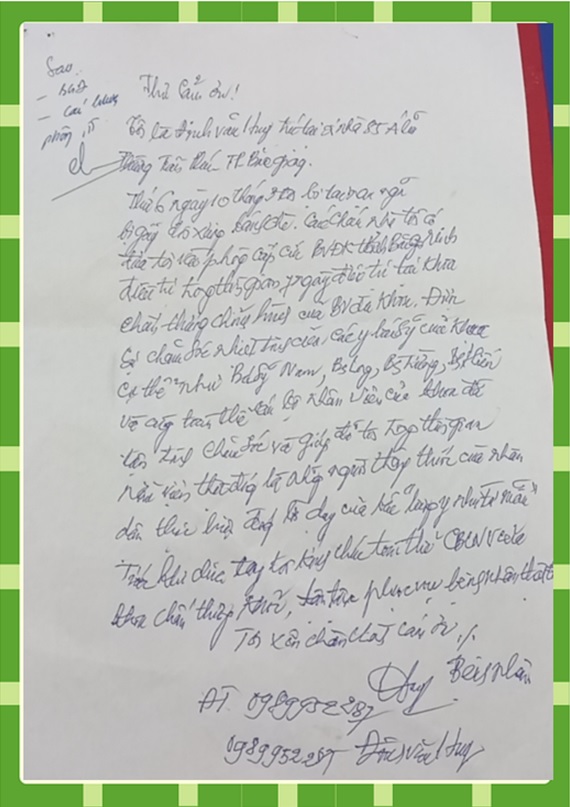 Sao:
- BGĐ
phòng
Thư Cảm ơn!
Tôi là Đinh văn Huy trú tại số nhà 85 Á lữ
Phường Trần Phú TP Bắc giang.
Thứ 6 ngày 10 tháng bị tai nạn ngã
bị gẫy bánh chè. Các cháu nhà tôi có
đưa tôi vào phòng cấp cứu BVĐK
được trong thời gian 7 ngày điều trị tại khoa
chấn thương chỉnh hình của BV đa khoa. Được
sự chăm sóc nhiệt tình của các y bác sỹ của khoa
cụ thể như Bác sỹ Nam, Bs Long, Bs
và cùng toàn thể cán bộ nhân viên của khoa đã
tận tình chăm sóc và giúp đỡ tôi trong thời gian
nằm viện thật đáng là những người thầy thuốc của nhân
dân thực hiện đúng lời dạy của Bác "lương y như từ mẫu"
Trước khi tôi kính chúc toàn thể CBCNV của
khoa chấn thương khỏe, phục vụ bệnh nhân
Tôi xin chân thành cảm ơn ./.
Bệnh nhân
Huy
ĐT 0989952287
0989952287 Đinh văn Huy